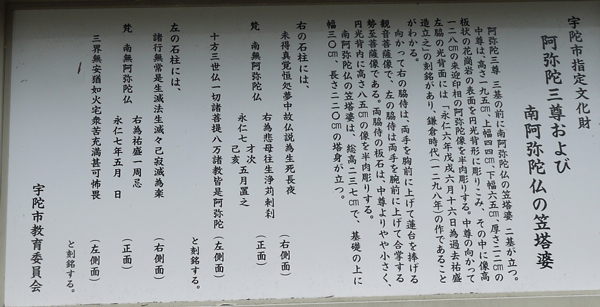 宇陀市指定文化財
阿弥陀三尊および
南阿弥陀仏の笠塔婆
阿弥陀三尊 三基の前に南阿弥陀仏の笠塔婆 二基が立つ。
中尊は、高さ一九五㎝、上幅四四㎝、下幅六五㎝、厚さ二三㎝の
板状の花崗岩の表面を円光背形に彫りこみ、その中に像高
一二八㎝の来迎印相の阿弥陀像を半肉彫りする。中尊の向かって
左脇の光背面には「永仁六年戊戌六月十六日為過去祐盛
造立之」の刻銘があり、鎌倉時代(一二九八年)の作であること
がわかる。
向かって右の脇侍は、両手を胸前に上げて蓮台を捧げる
観音菩薩像で、左の脇侍は両手を腕前に上げて合掌する
勢至菩薩像である。両脇侍の板石は、中尊よりやや小さく、
円光背内に高さ八五㎝の像を半肉彫りする。
南阿弥陀仏の笠塔婆は、総高二三七㎝で、基礎の上に
幅三〇㎝、長さ二二〇㎝の塔身が立つ。
右の石柱には、
未得真覚恒処夢中故仏説為生死長夜 (右側面)
右為悲母往生浄刹刻彫
梵 南無阿弥陀仏 (正面)
永仁七 才次 己亥 五月置之
十方三世仏一切諸菩提八万諸教皆是阿弥陀 (左側面)
と刻銘する。
左の石柱には、
諸行無常是生滅法生滅々己寂滅為楽 (右側面)
右為祐盛一周忌
梵 南無阿弥陀仏 (正面)
永仁七年五月 日
三界無安猶如火宅衆苦充満甚可怖畏 (左側面)
と刻銘する。
宇陀市教育委員会